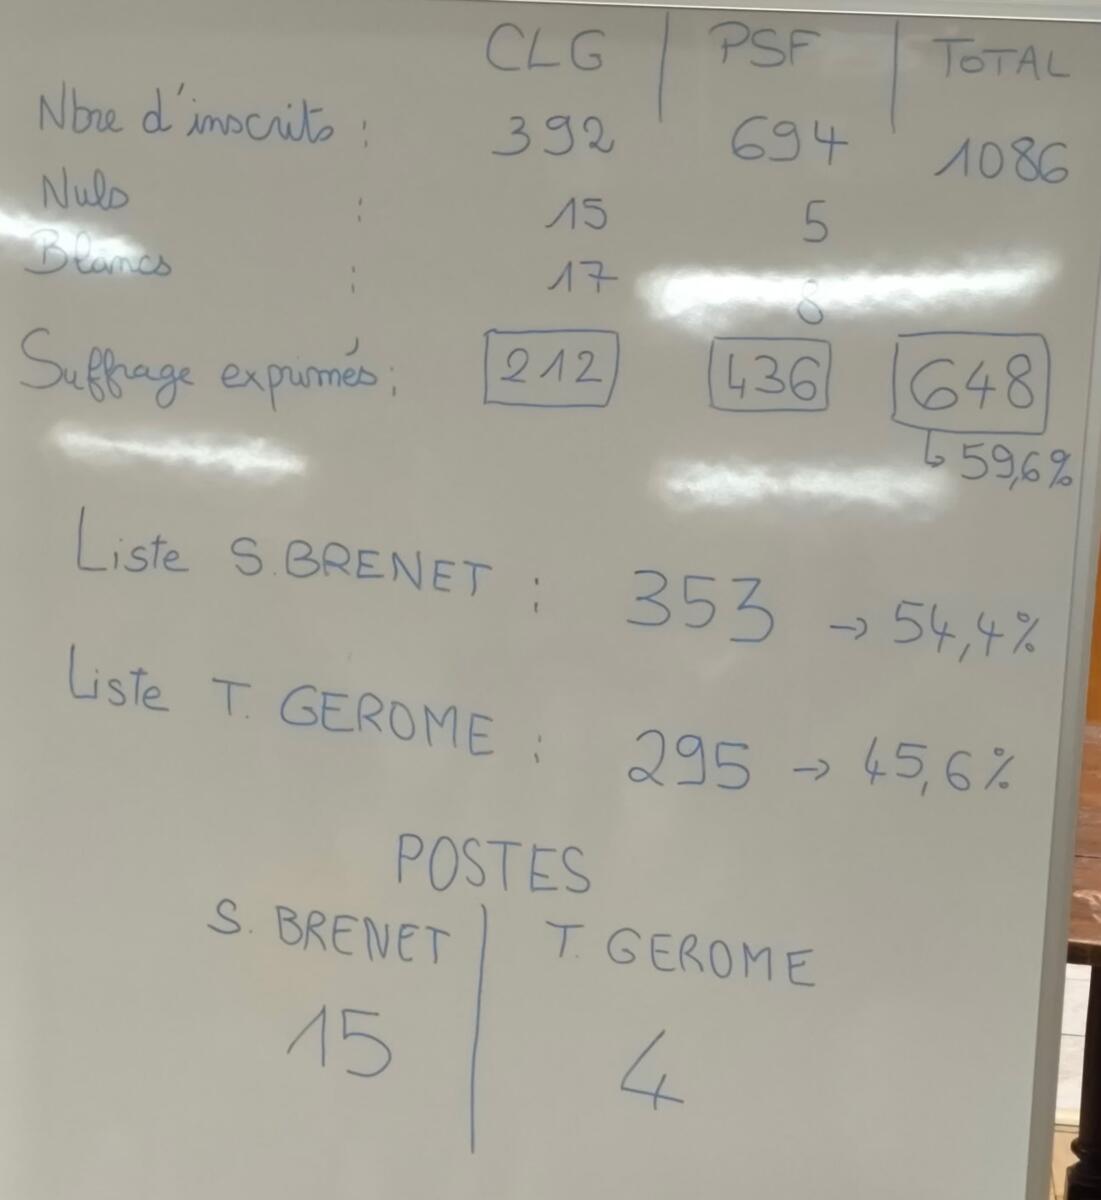 CLG PSF TOTAL
Nbre d'inscrits : 392 694 1086
Nuls : 15 5
Blancs : 17 8
Suffrage exprimés : 212 436 648
↳ 59,6%
Liste S. BRENET : 353 → 54,4%
Liste T. GEROME : 295 → 45,6%
POSTES
S. BRENET T. GEROME
15 4